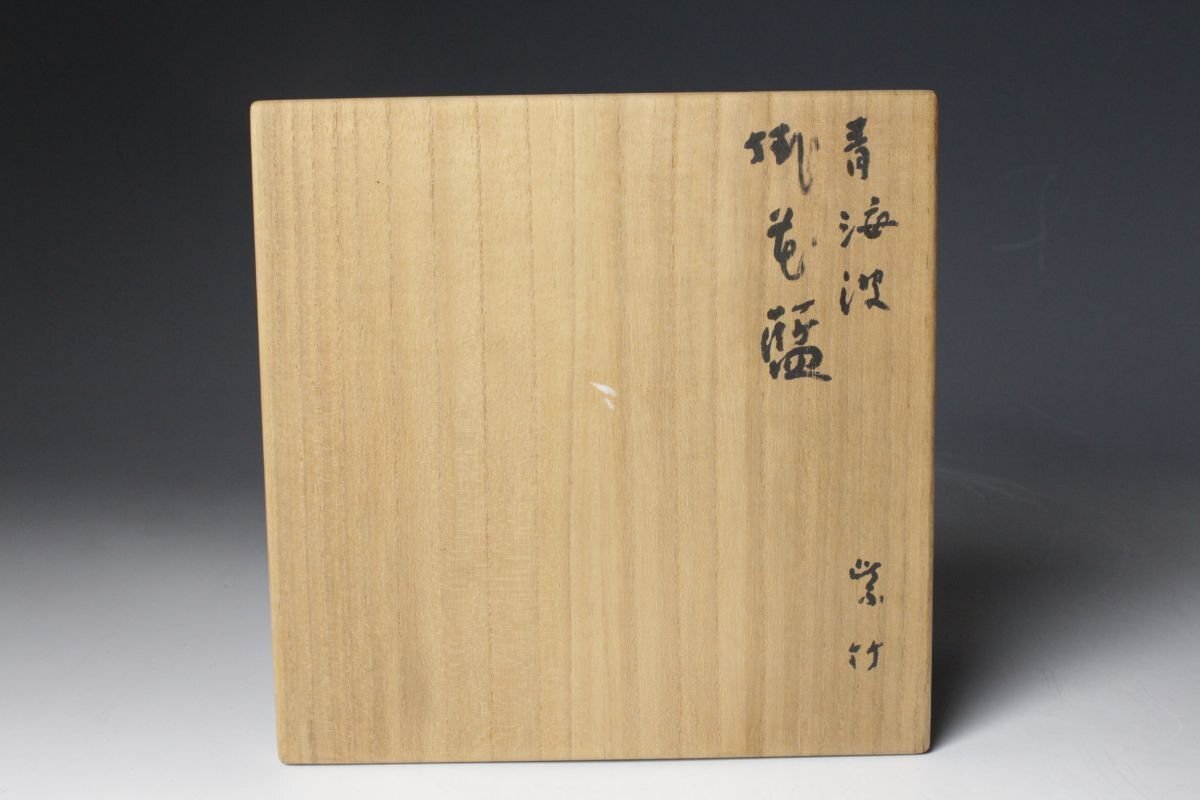 青海波
掛花籃
紫竹